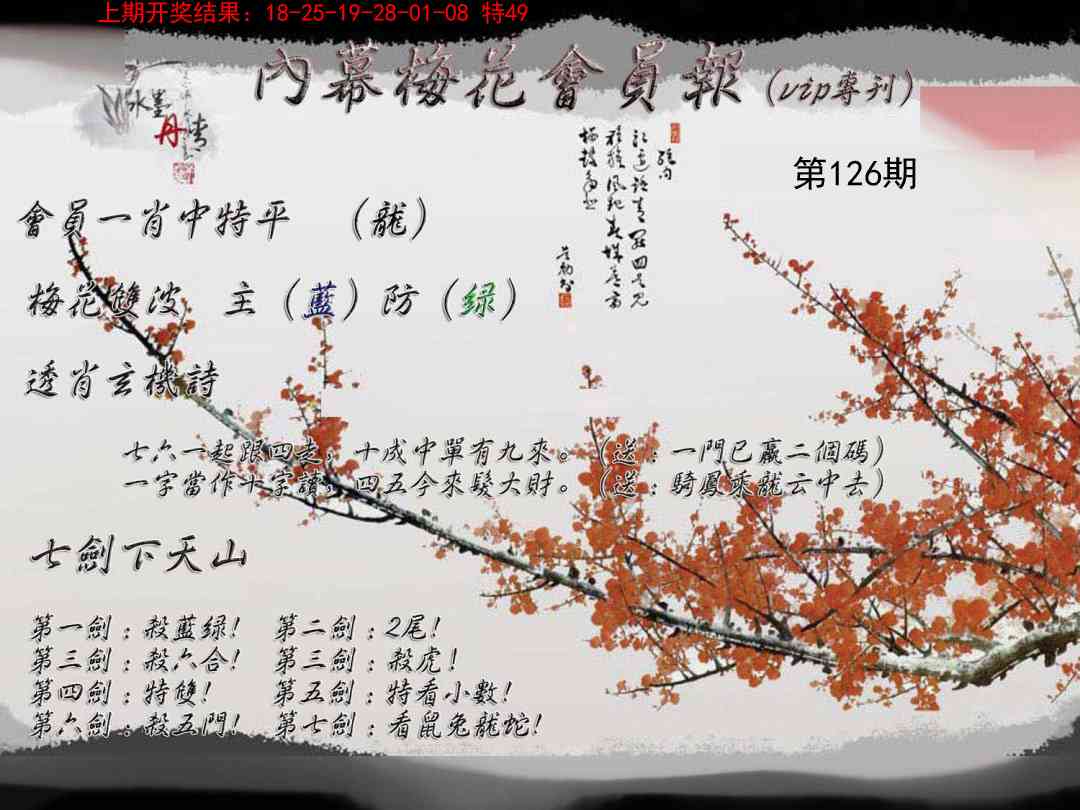 上期开奖结果：18-25-19-28-01-08 特49
內幕梅花會員報(vip專刊)
水墨
丹青
第126期
會員一肖中特平 （龍）
梅花雙波 主（藍）防（绿）
透肖玄機詩
七六一起跟四走，十成中單有九來。（送：一門已贏二個碼）
一字當作十字讀，四五今來髮大財。（送：騎鳳乘龍云中去）
七劍下天山
第一劍：殺藍绿！ 第二劍：2尾！
第三劍：殺六合！ 第三劍：殺虎！
第四劍：特雙！ 第五劍：特看小數！
第六劍：殺五門！ 第七劍：看鼠兔龍蛇！